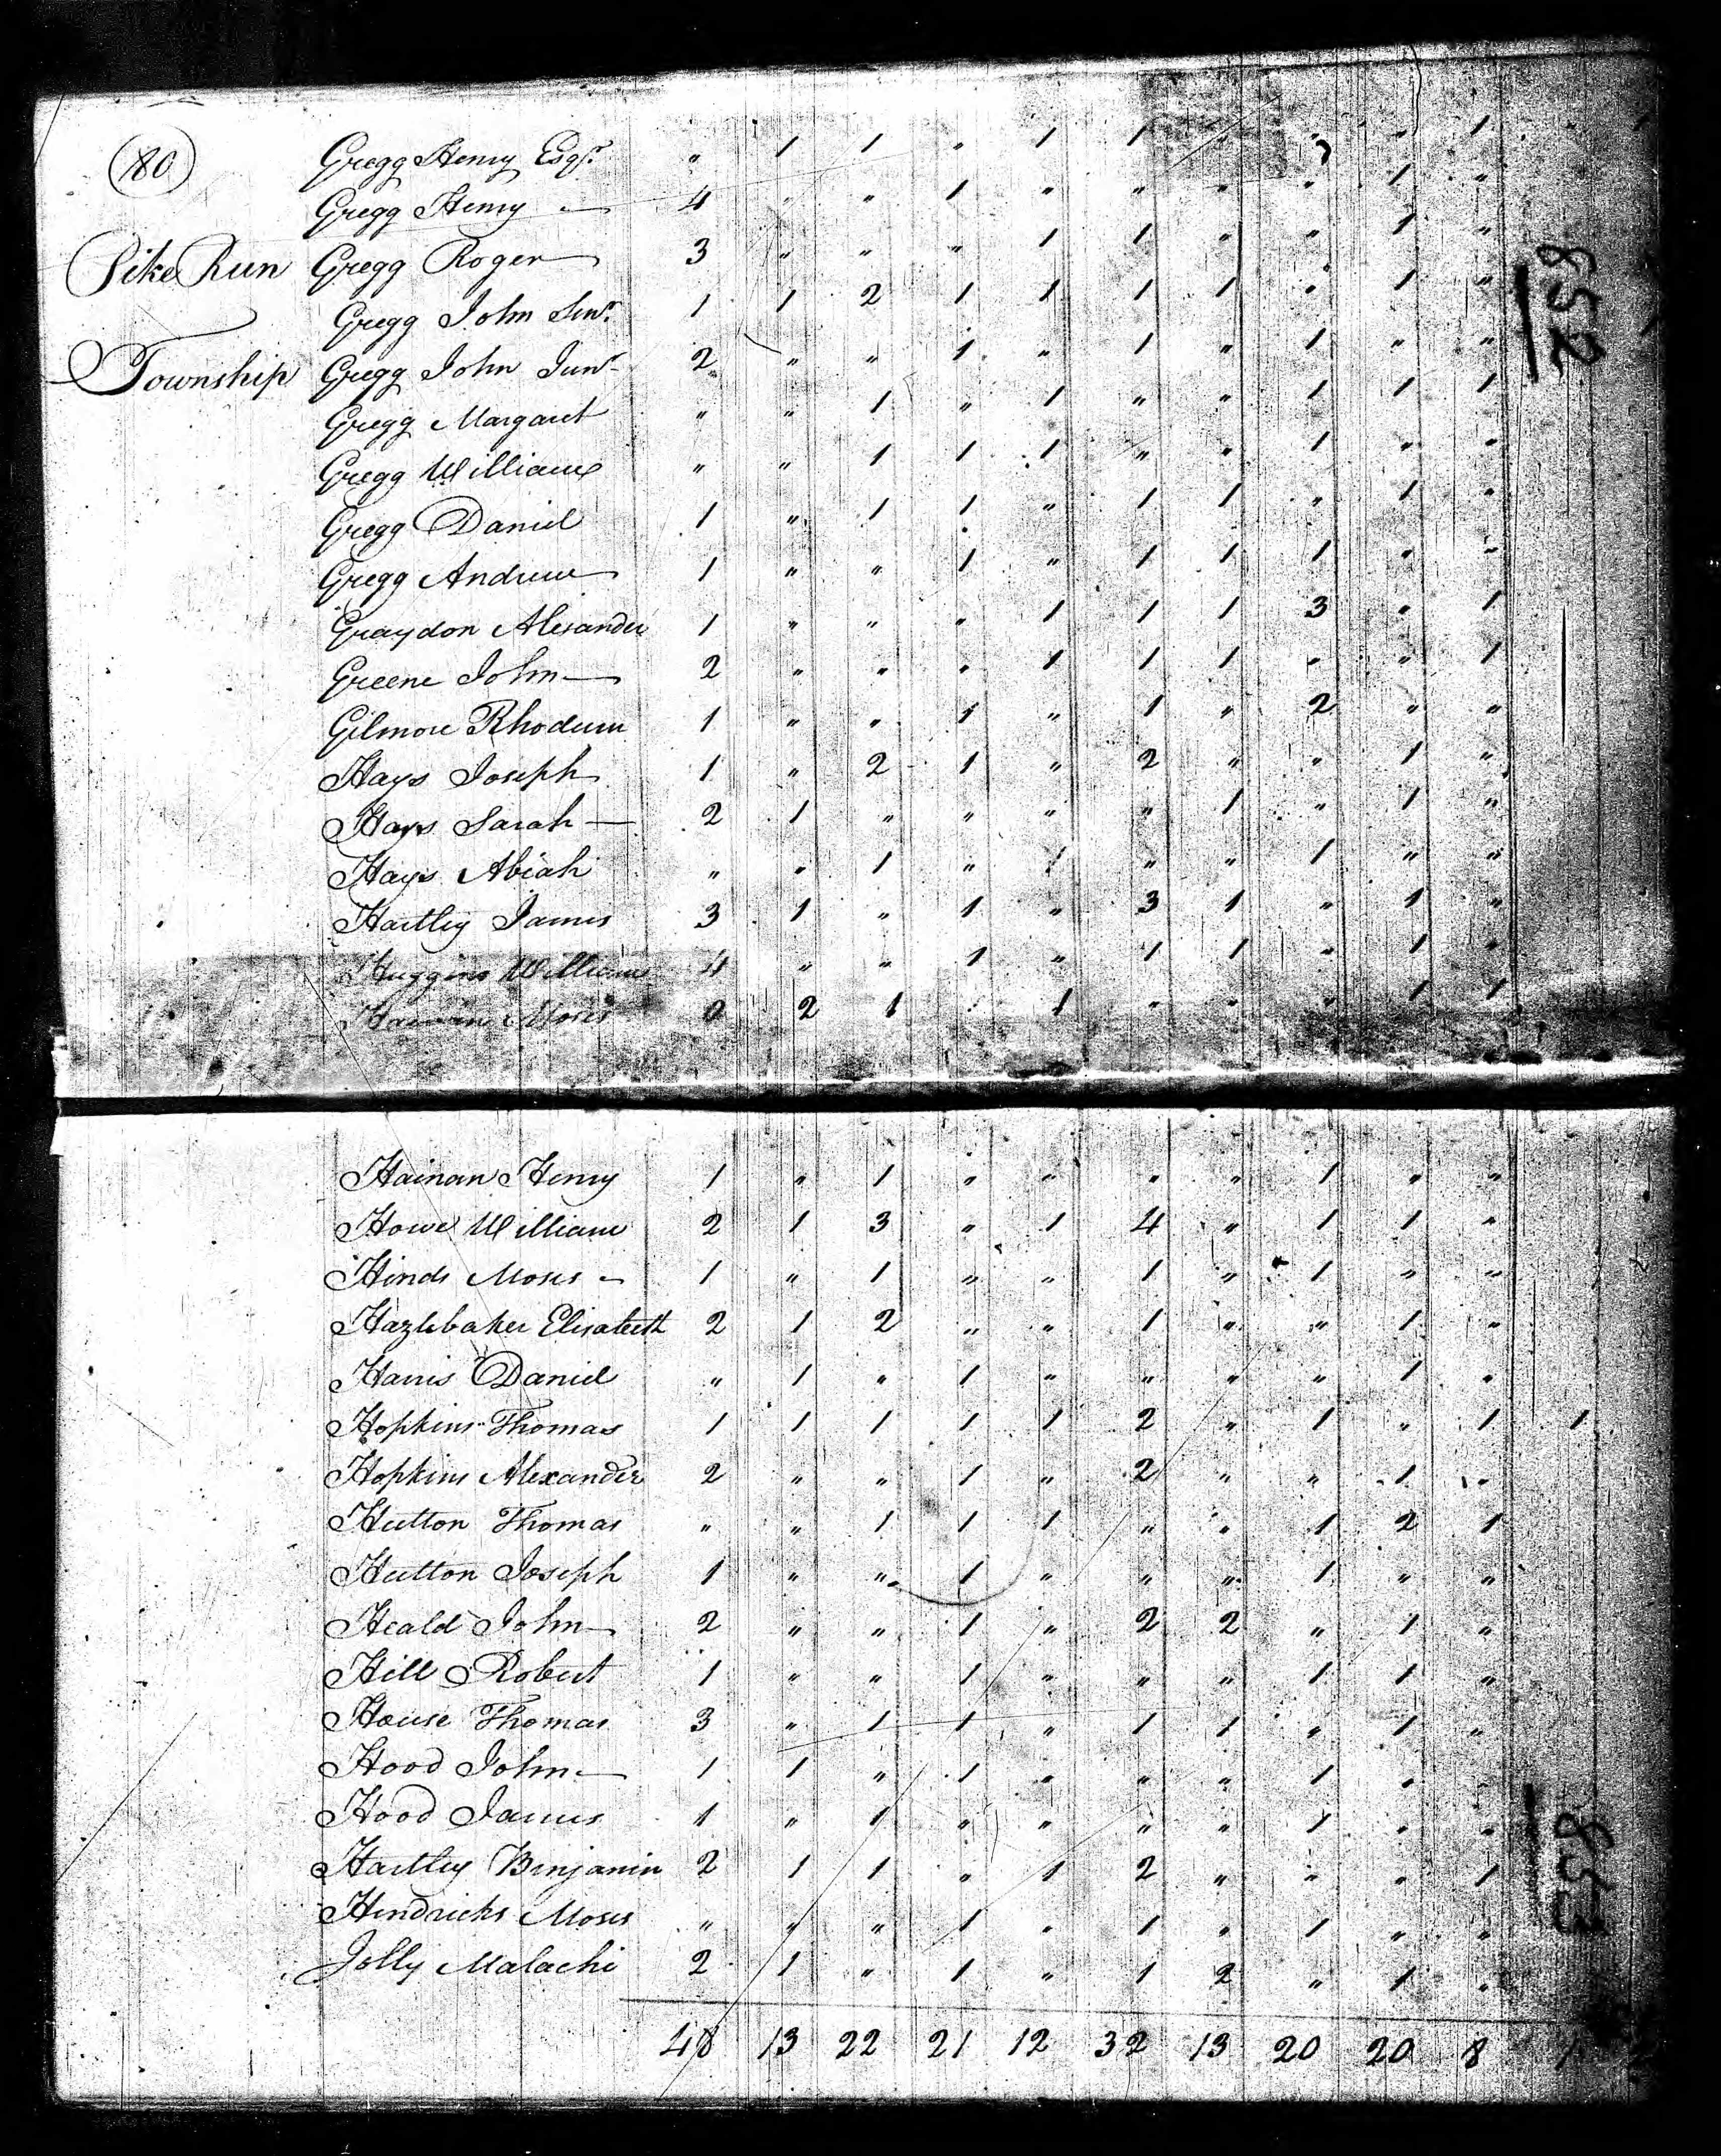 80
Gregg Henry Esqr. " 1 1 " 1 1 " " " 1
Gregg Henry — 4 " " 1 " " " " 1 "
Pike Run Gregg Roger — 3 " " " 1 1 " " 1 "
Gregg John Senr. 1 1 2 1 1 1 1 " 1 "
Township Gregg John Junr 2 " " 1 " 1 " 1 " "
Gregg Margaret " " 1 " 1 " " 1 1 1
Gregg William " " 1 1 1 " " 1 " "
Gregg Daniel 1 " 1 1 " 1 1 " 1 "
Gregg Andrew 1 " " 1 " 1 1 1 " "
Graydon Alexander 1 " " " 1 1 1 3 " 1
Greene John — 2 " " " 1 1 1 " " 1
Gilmore Rhodum 1 " " 1 " 1 " 2 " "
Hays Joseph 1 " 2 1 " 2 " " 1 "
Hays Sarah — 2 1 " " " " 1 " 1 "
Hays Abiah " " 1 " 1 " " 1 " "
Hartley James 3 1 " 1 " 3 1 " 1 "
Huggins William 4 " " 1 " 1 1 " 1 "
Moses 2 1 1 " " " 1 1
Hainan Henry 1 " 1 " " " " 1 " "
Howe William 2 1 3 " 1 4 " 1 1 "
Hinds Moses — 1 " 1 " " 1 " 1 " "
Hazlebaker Elisabeth 2 1 2 " " 1 " " 1 "
Harris Daniel " 1 " 1 " " " " 1 "
Hopkins Thomas 1 1 1 1 1 2 " 1 " 1 1
Hopkins Alexander 2 " " 1 " 2 " " 1 "
Hutton Thomas " " 1 1 1 " " 1 2 1
Hutton Joseph 1 " " 1 " " " 1 " "
Heald John — 2 " " 1 " 2 2 " 1 "
Hill Robert 1 " " 1 " " " 1 1 "
House Thomas 3 " 1 1 " 1 1 " 1 "
Hood John — 1 1 " 1 " " " 1 " "
Hood James 1 " 1 " " " " 1 " "
Hartley Benjamin 2 1 1 " 1 2 " " " 1
Hendricks Moses " " " 1 " 1 " 1 " "
Jolly Malachi 2 1 " 1 " 1 2 " 1 "
48 13 22 21 12 32 13 20 20 8 1
852
853